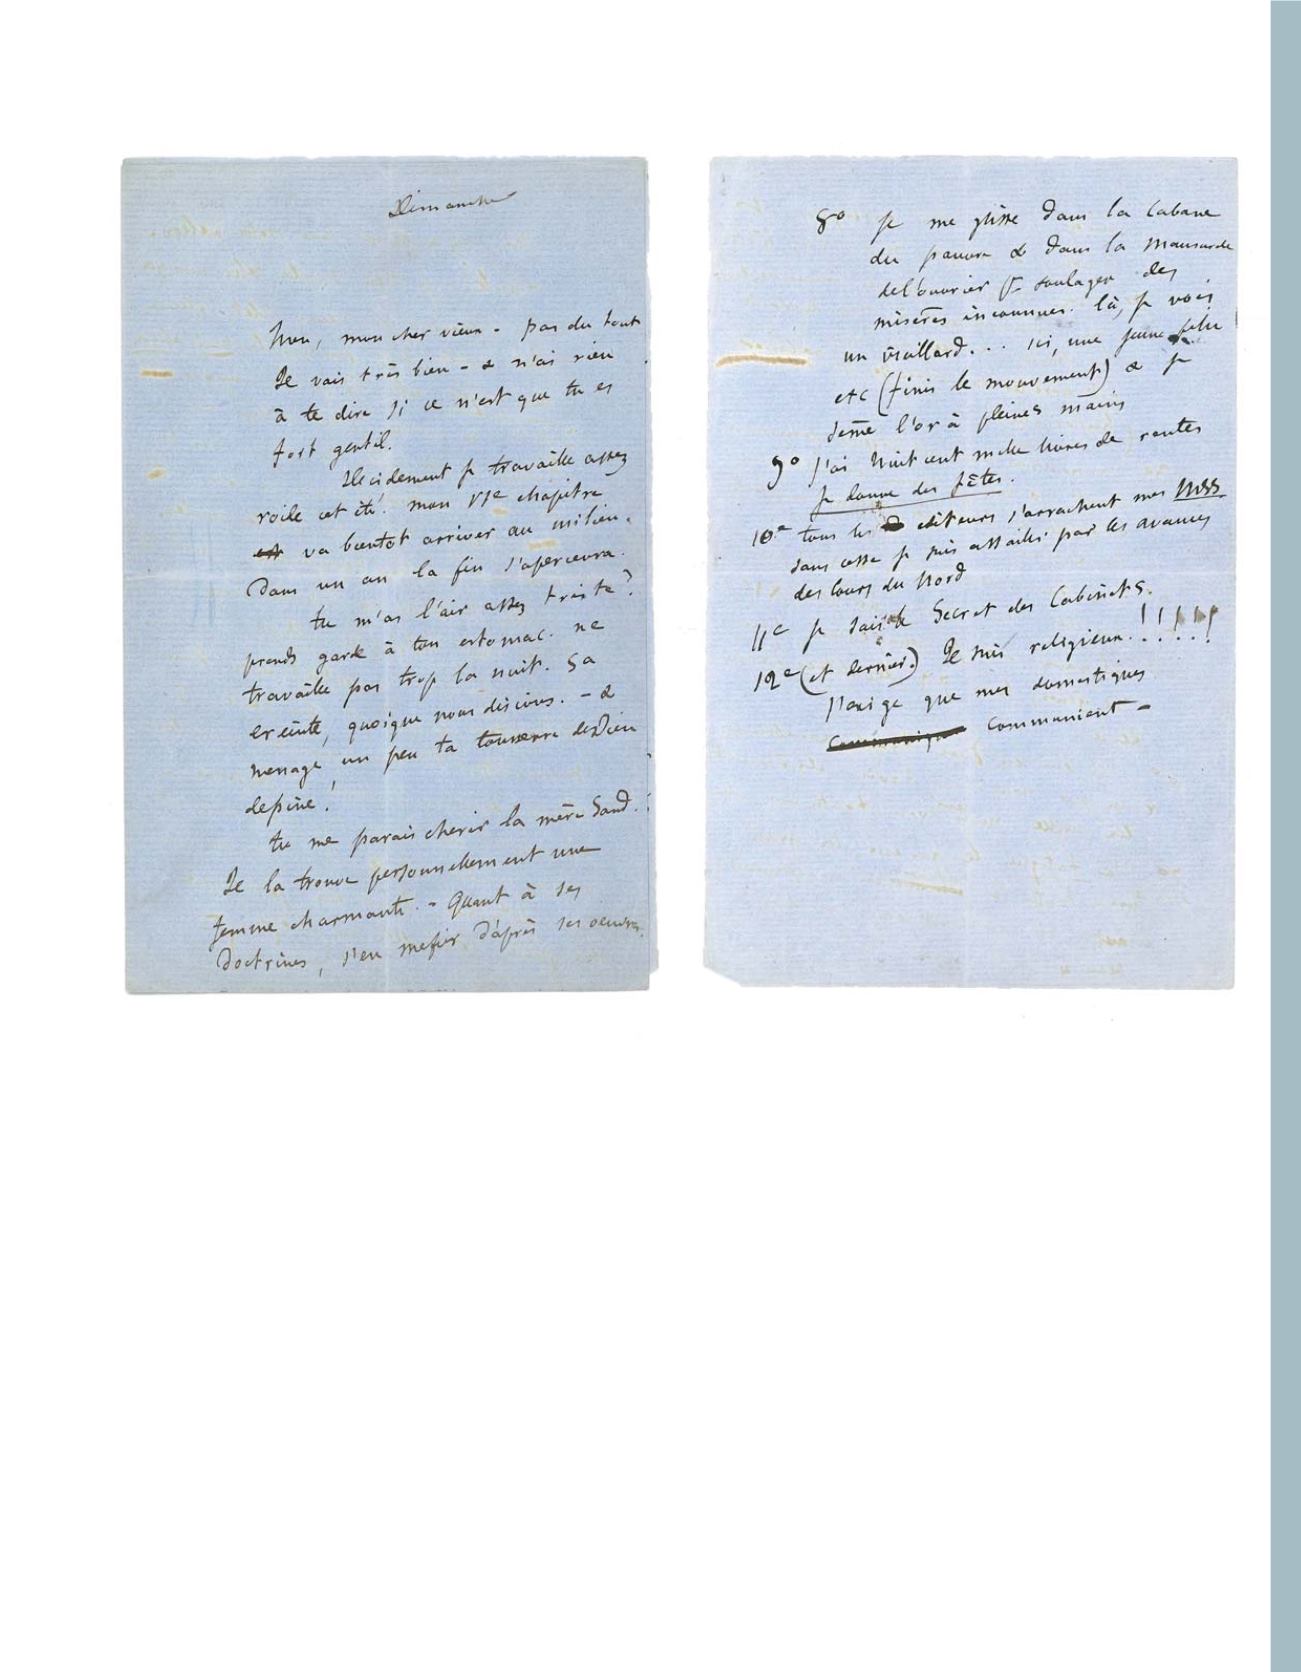 Dimanche
Non, mon cher vieux - pas du tout
Je vais très bien - & n'ai rien
à te dire si ce n'est que tu es
fort gentil.
Décidement je travaille assez
roide cet été! mon VIe chapitre
est va bientot arriver au milieu.
Dans un an la fin s'apercevra.
tu m'as l'air assez triste?
prends garde à ton estomac. ne
travaille pas trop la nuit. Ça
ereinte, quoique nous disions. - &
menage un peu ta tonnerre de Dieu
de pine!
tu me parais cherir la mère Sand.
Je la trouve personnellement une
femme charmante. - Quant à ses
doctrines, s'en mefier d'après ses oeuvres.
8° je me glisse dans la cabane
du pauvre & dans la mansarde
de l'ouvrier pr soulager des
misères inconnues. là, je vois
un vieillard... ici, une jeune fille
etc (finis le mouvement) & je
sème l'or à pleines mains
9° J'ai huit cent mille livres de rentes
je donne des fêtes.
10e tous les editeurs s'arrachent mes mss
sans cesse je suis assailli par les avances
des Cours du Nord
11e je sais le Secret des Cabinets.
12e (et dernier.) Je suis religieux!!!!!
J'exige que mes domestiques
communient -